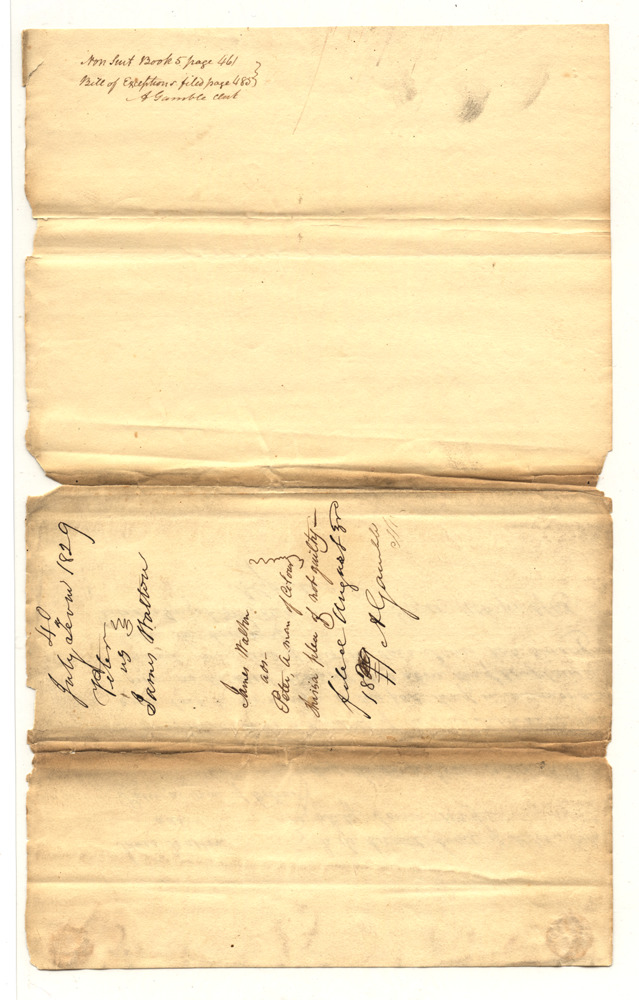 Non Suit Book 5 page 461
Bill of Exceptions filed page 485
A Gamble clerk
40
July Term 1829
Peter
vs
James Walton
James Walton
ads.
Peter a man of Colour
plea of not guilty
filed August 3rd
1829 A Gamble